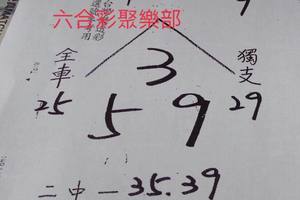 六合彩聚樂部
3
全車 獨支
25 5 9 29
二中一35.39